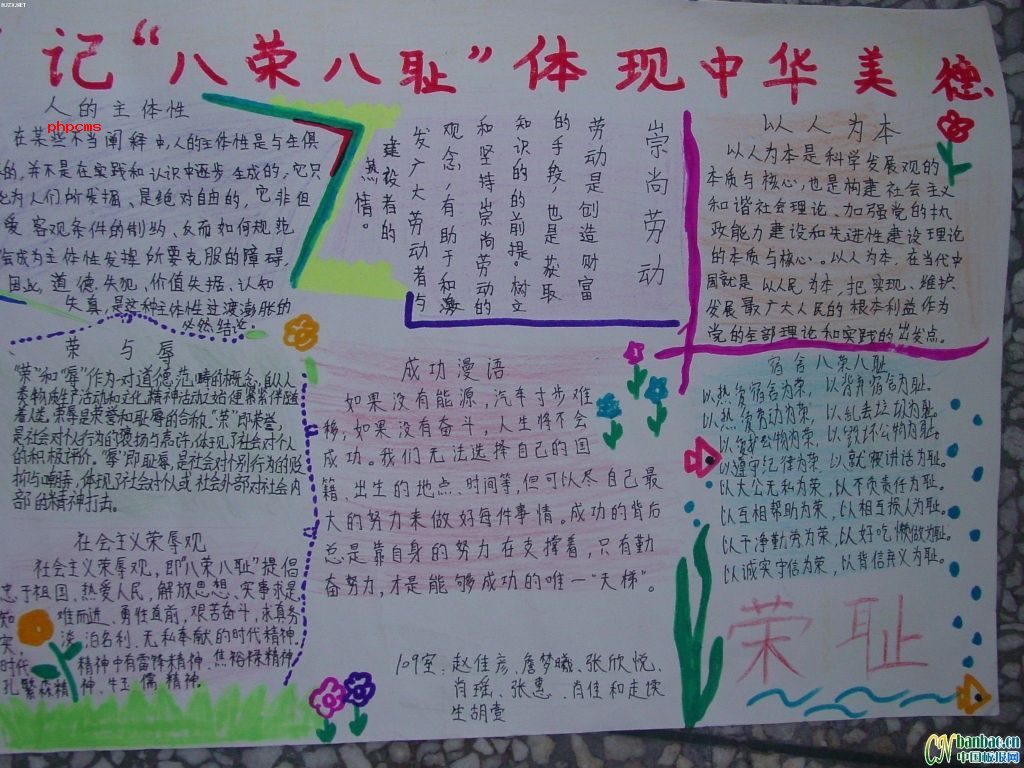 记“八荣八耻”体现中华美德
人的主体性
phpcms
在某些不当阐释中,人的主体性是与生俱
的,并不是在实践和认识中逐步生成的,它只
为人们所发掘、是绝对自由的,它非但
爱客观条件的制约、反而如何规范
会成为主体性发挥所要克服的障碍,
因此,道德失范,价值失据、认知
失真,是这种主体性过渡澎胀的
必然结论。
崇尚劳动
劳动是创造财富
的手段,也是获取
知识的的前提。树立
和坚持崇尚劳动的
观念,有助于和激
发广大劳动者与
建设者的
热情。
以人为本
以人为本是科学发展观的
本质与核心,也是构建社会主义
和谐社会理论、加强党的执
政能力建设和先进性建设理论
的本质与核心。以人为本,在当代中
国就是以人民为本,把实现、维护、
发展最广大人民的根本利益作为
党的全部理论和实践的出发点。
荣与辱
“荣”和“辱”作为一对道德范畴的概念,自从人
类物质生产活动和文化精神活动始便常常伴随
着人类。荣辱是荣誉和耻辱的合称。“荣”即荣誉,
是社会对个人行为的褒扬与嘉许,体现了社会对个人
的积极评价。“辱”即耻辱,是社会对个别行为的贬
折与嘲弄,体现了社会对个人或社会外部对社会内
部的精神打击。
社会主义荣辱观
社会主义荣辱观,即“八荣八耻”提倡
忠于祖国、热爱人民,解放思想、实事求是
知难而进、勇往直前,艰苦奋斗,求真务
实,淡泊名利、无私奉献的时代精神。
时代精神中有雷锋精神、焦裕禄精神
孔繁森精神、牛玉儒精神。
成功漫语
如果没有能源,汽车寸步难
移,如果没有奋斗,人生将不会
成功。我们无法选择自己的国
籍、出生的地点、时间等,但可以尽自己最
大的努力来做好每件事情。成功的背后
总是靠自身的努力在支撑着,只有勤
奋努力,才是能够成功的唯一“天梯”。
109室:赵佳彦、詹梦曦、张欣悦、
肖瑶、张惠、肖佳和走读
生胡壹
宿舍八荣八耻
以热爱宿舍为荣,以背弃宿舍为耻。
以热爱劳动为荣,以乱丢垃圾为耻。
以爱护公物为荣,以毁坏公物为耻。
以遵守纪律为荣,以就寝讲话为耻。
以大公无私为荣,以不负责任为耻。
以互相帮助为荣,以相互损人为耻。
以干净勤劳为荣,以好吃懒做为耻。
以诚实守信为荣,以背信弃义为耻。
荣耻
CN banbao.cn
中国板报网